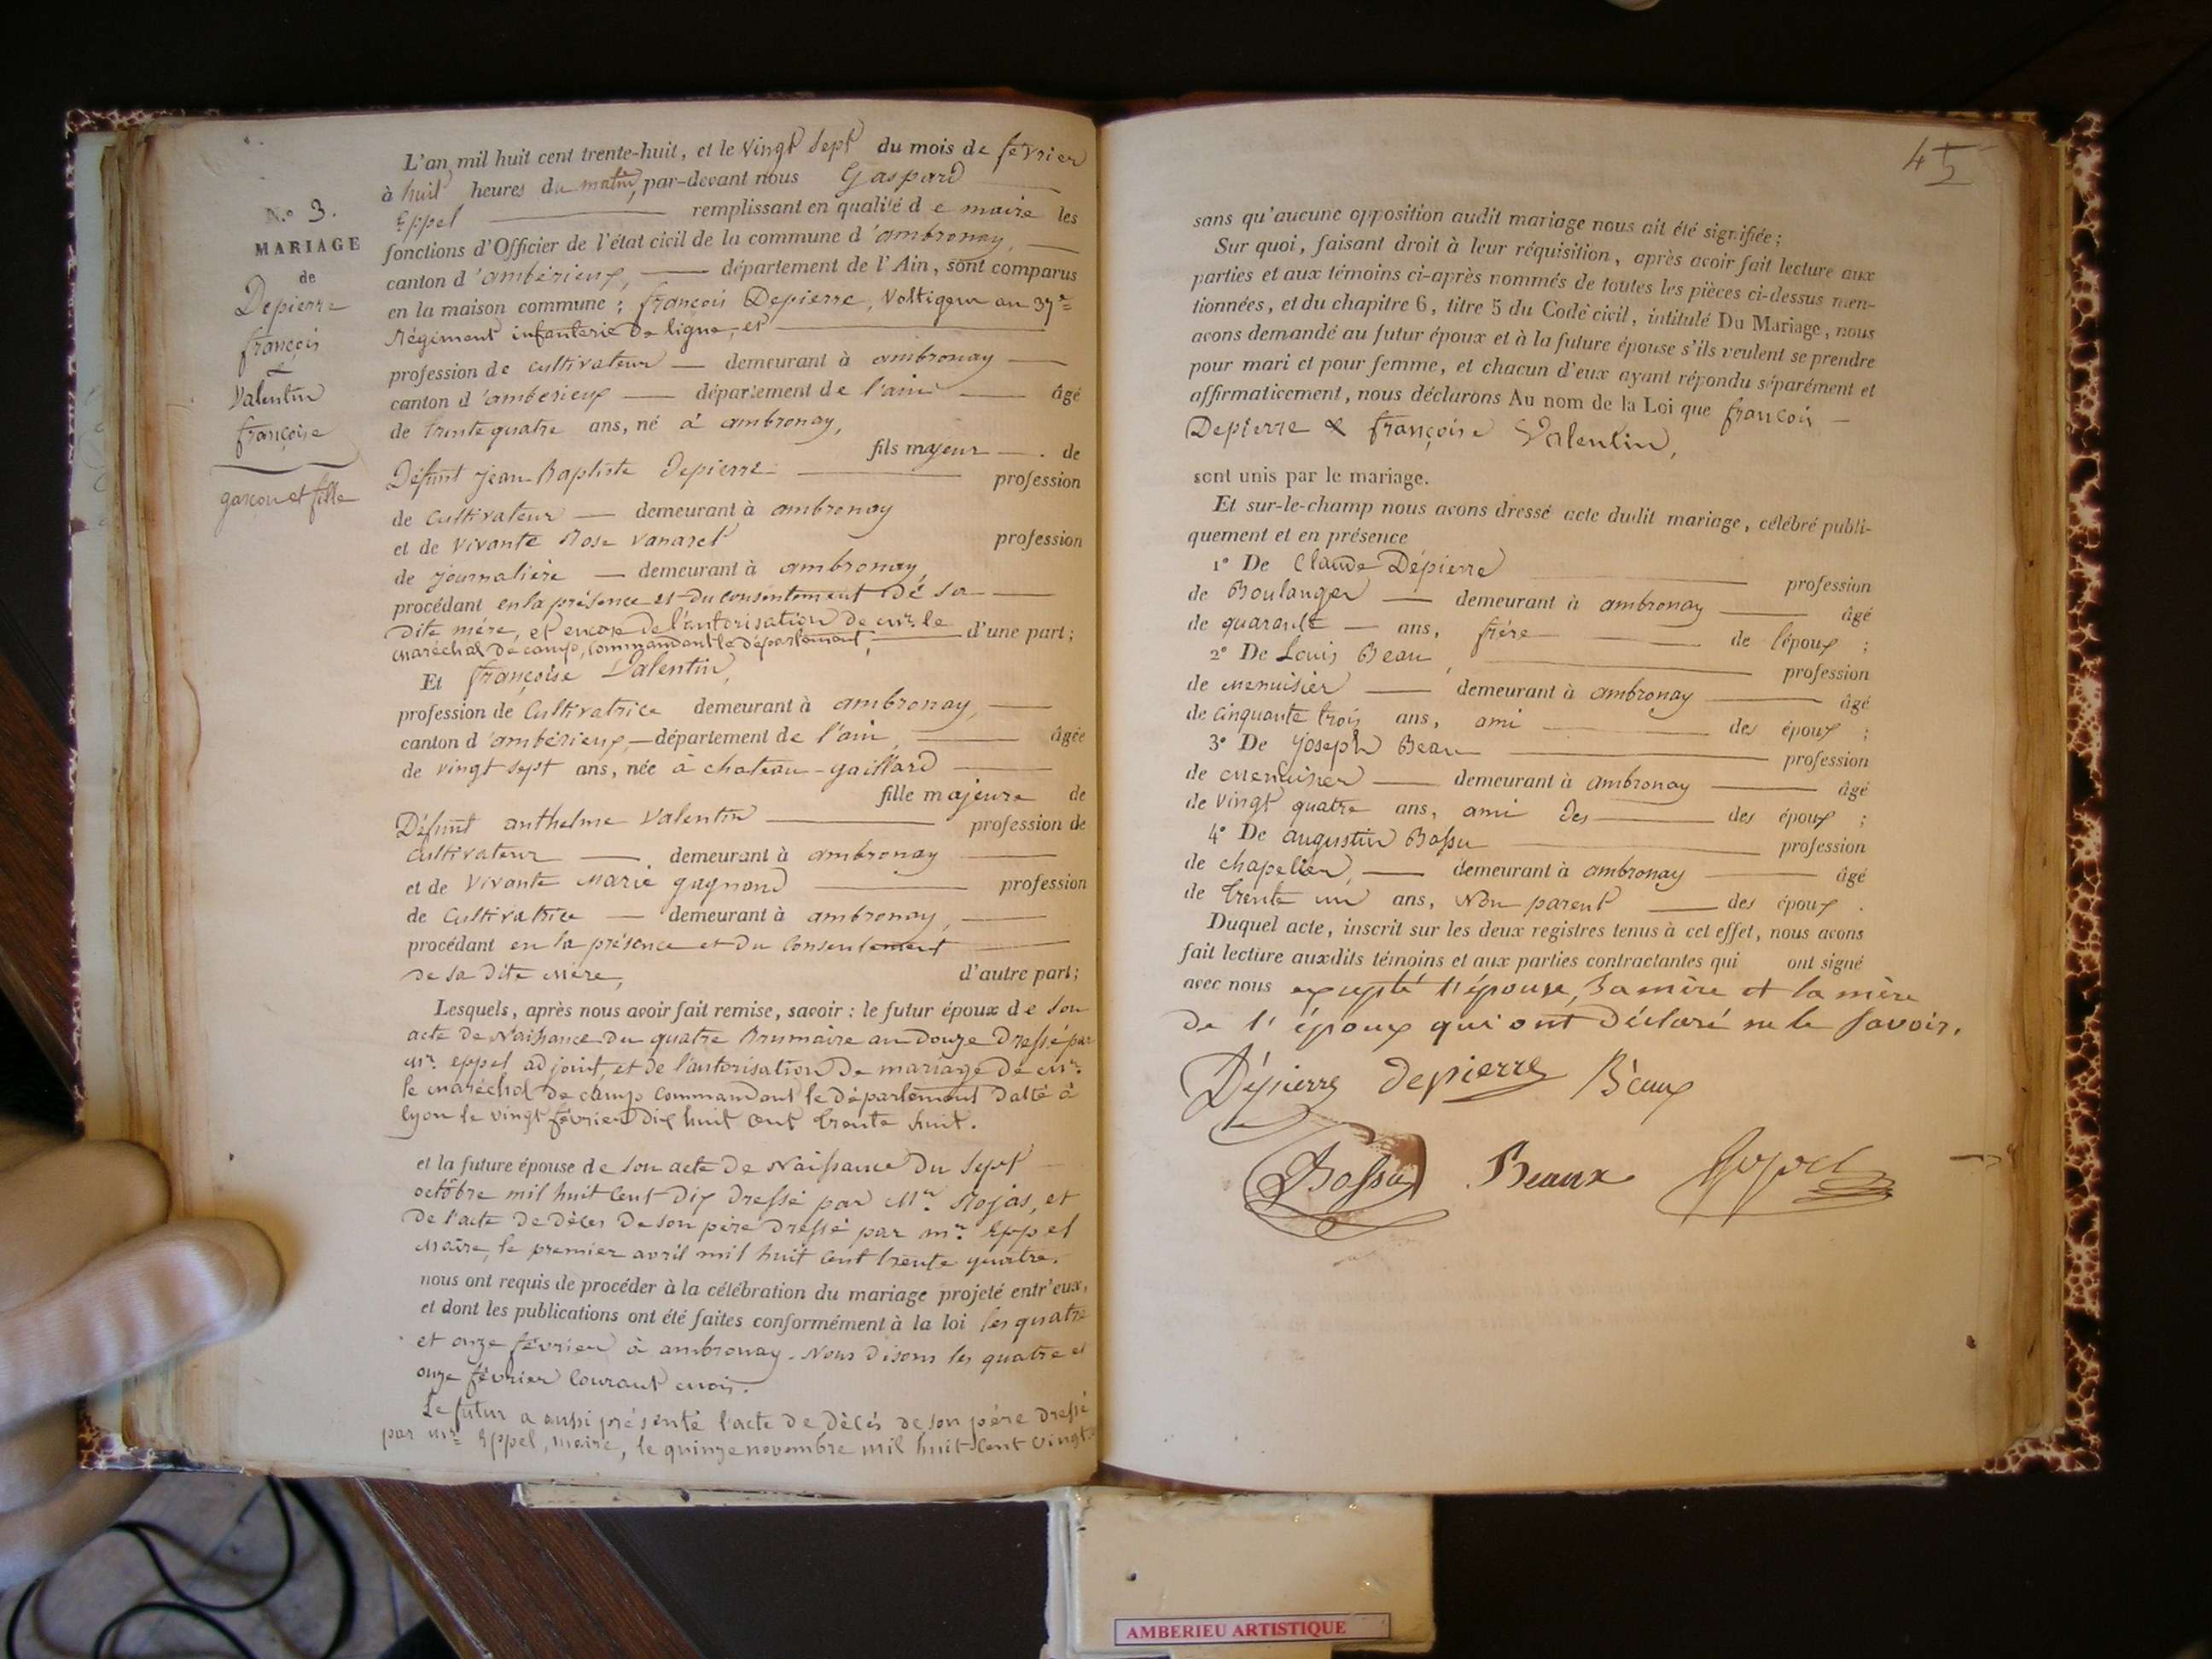 N.o 3.
MARIAGE
de
Depierre
françois
&
Valentin
françoise
garçon et fille
L'an mil huit cent trente-huit, et le vingt sept du mois de février
à huit heures du matin, par-devant nous Gaspard
Eppel remplissant en qualité de maire les
fonctions d'Officier de l'état civil de la commune d'ambronay,
canton d'ambérieux, département de l'Ain, sont comparus
en la maison commune : françois Depierre, Voltigeur au 37e
Régiment infanterie de ligne, et
profession de cultivateur demeurant à ambronay
canton d'ambérieux département de l'ain âgé
de trente quatre ans, né à ambronay,
fils majeur de
Défunt jean Baptiste Depierre profession
de cultivateur demeurant à ambronay
et de vivante Rose Vanaret profession
de journalière demeurant à ambronay,
procédant en la présence et du consentement de sa
dite mère, et encore de l'autorisation de mr. le
maréchal de camp, commandant le département, d'une part;
Et françoise Valentin,
profession de Cultivatrice demeurant à ambronay,
canton d'ambérieux, département de l'ain, âgée
de vingt sept ans, née à chateau-gaillard
fille majeure de
Défunt anthelme Valentin profession de
cultivateur demeurant à ambronay
et de vivante marie gagnand profession
de cultivatrice demeurant à ambronay,
procédant en la présence et du consentement
de sa dite mère, d'autre part;
Lesquels, après nous avoir fait remise, savoir : le futur époux de son
acte de Naissance du quatre Brumaire an douze dressé par
mr. eppel adjoint, et de l'autorisation de mariage de Mr.
le maréchal de camp commandant le département datté à
lyon le vingt février dix huit cent trente huit.
et la future épouse de son acte de Naissance du sept
octobre mil huit cent dix dressé par Mr. Rojas, et
de l'acte de décès de son père dressé par mr. Eppel
maire, le premier avril mil huit cent trente quatre.
nous ont requis de procéder à la célébration du mariage projeté entr'eux,
et dont les publications ont été faites conformément à la loi les quatre
et onze février à ambronay. Nous disons les quatre et
onze février courant mois.
Le futur a aussi présenté l'acte de décès de son père dressé
par mr. Eppel, maire, le quinze novembre mil huit cent vingt
45
sans qu'aucune opposition audit mariage nous ait été signifiée;
Sur quoi, faisant droit à leur réquisition, après avoir fait lecture aux
parties et aux témoins ci-après nommés de toutes les pièces ci-dessus men-
tionnées, et du chapitre 6, titre 5 du Code civil, intitulé Du Mariage, nous
avons demandé au futur époux et à la future épouse s'ils veulent se prendre
pour mari et pour femme, et chacun d'eux ayant répondu séparément et
affirmativement, nous déclarons Au nom de la Loi que françois
Depierre & françoise Valentin,
sont unis par le mariage.
Et sur-le-champ nous avons dressé acte dudit mariage, célébré publi-
quement et en présence
1° De Claude Dépierre profession
de Boulanger demeurant à ambronay âgé
de quarante ans, frère de l'époux ;
2° De Louis Beau, profession
de menuisier demeurant à ambronay âgé
de cinquante trois ans, ami des époux ;
3° De Joseph Beau profession
de menuisier demeurant à ambronay âgé
de vingt quatre ans, ami des des époux ;
4° De augustin Bossu profession
de chapelier, demeurant à ambronay âgé
de trente un ans, Non parent des époux .
Duquel acte, inscrit sur les deux registres tenus à cet effet, nous avons
fait lecture auxdits témoins et aux parties contractantes qui ont signé
avec nous excepté l'épouse, sa mère et la mère
de l'époux qui ont déclaré ne le savoir.
Dépierre depierre Béaux
Bossu Beaux Eppel
AMBERIEU ARTISTIQUE